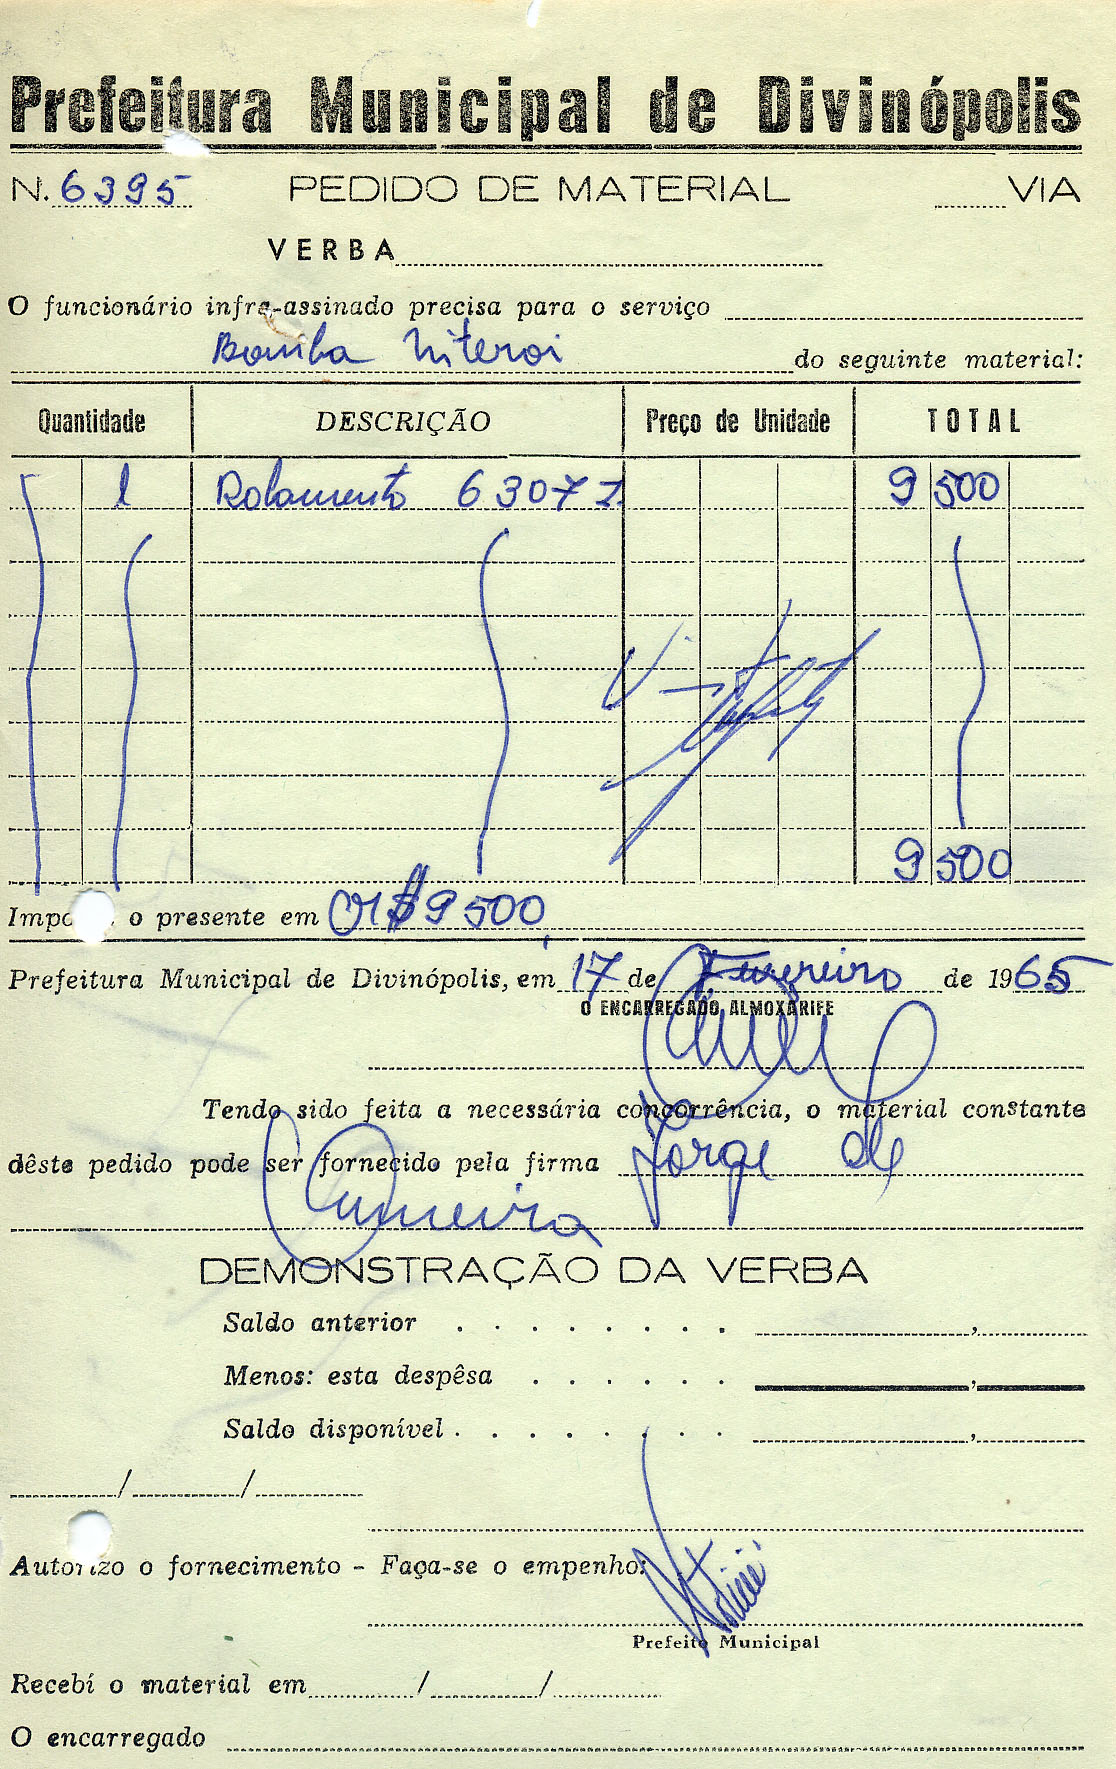 Prefeitura Municipal de Divinópolis
N. 6395 PEDIDO DE MATERIAL ........ VIA
VERBA
O funcionário infra-assinado precisa para o serviço
Bomba Niteroi do seguinte material:
Quantidade DESCRIÇÃO Preço de Unidade TOTAL
1 Rolamento 6307 Z 9 500
9 500
o presente em CR$ 9 500,
Prefeitura Municipal de Divinópolis, em 17 de Fevereiro de 1965
O ENCARREGADO ALMOXARIFE
Tendo sido feita a necessária concorrência, o material constante
dêste pedido pode ser fornecido pela firma Jorge de
DEMONSTRAÇÃO DA VERBA
Saldo anterior . . . . . . . . ,
Menos: esta despêsa . . . . . . ,
Saldo disponível . . . . . . . . ,
/ /
Autorizo o fornecimento - Faça-se o empenho:
Prefeito Municipal
Recebí o material em / /
O encarregado